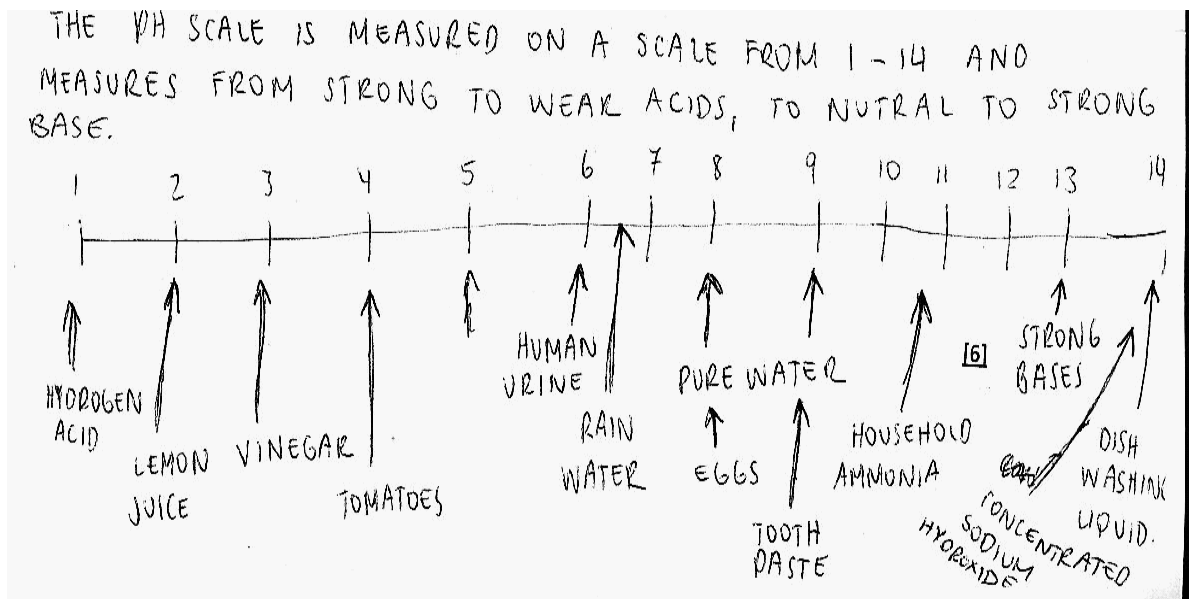 THE PH SCALE IS MEASURED ON A SCALE FROM 1-14 AND
MEASURES FROM STRONG TO WEAK ACIDS, TO NUTRAL TO STRONG
BASE.
1 2 3 4 5 6 7 8 9 10 11 12 13 14
HYDROGEN
ACID
LEMON
JUICE
VINEGAR
TOMATOES
HUMAN
URINE
RAIN
WATER
PURE WATER
EGGS
TOOTH
PASTE
HOUSEHOLD
AMMONIA
[6]
STRONG
BASES
CONCENTRATED
SODIUM
HYDROXIDE
DISH
WASHINK
LIQUID.